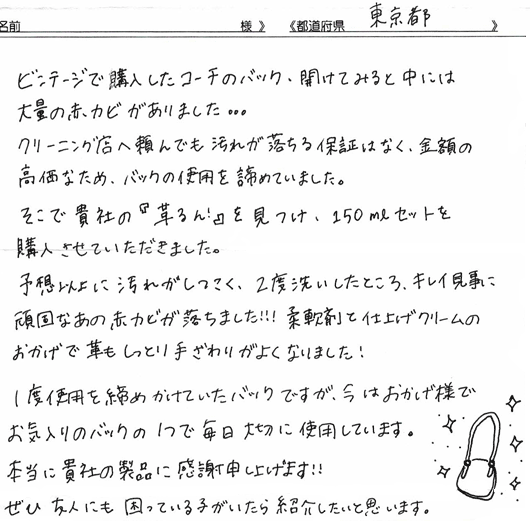 名前 様 》 《都道府県 東京都 》
ビンテージで購入したコーチのバック、開けてみると中には
大量の赤カビがありました...
クリーニング店へ頼んでも汚れが落ちる保証はなく、金額の
高価なため、バックの使用を諦めていました。
そこで貴社の『革るん!』を見つけ、150mlセットを
購入させていただきました。
予想以上に汚れがしつこく、2度洗いしたところ、キレイ見事に
頑固なあの赤カビが落ちました!!! 柔軟剤と仕上げクリームの
おかげで革もしっとり手ざわりがよくなりました!
1度使用を締めかけていたバックですが、今はおかげ様で
お気入りのバックの1つで毎日大切に使用しています。
本当に貴社の製品に感謝申し上げます!!
ぜひ友人にも困っている子がいたら紹介したいと思います。